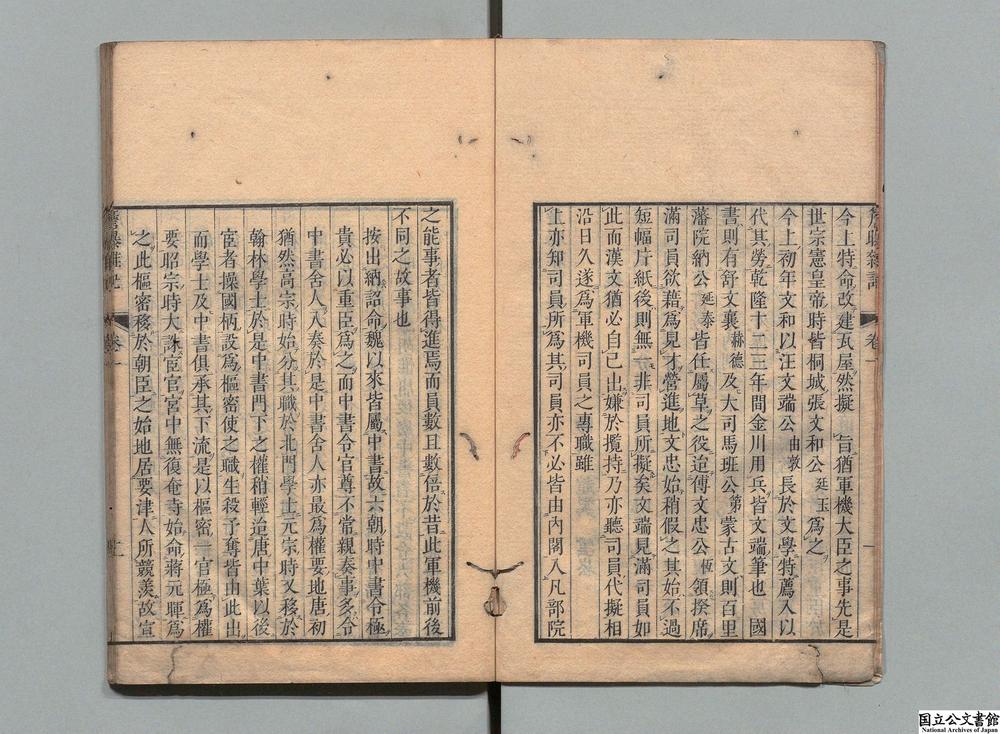 簷曝雜記
卷一
今上特命改建瓦屋然擬旨猶軍機大臣之事先是
世宗憲皇帝時皆桐城張文和公廷玉為之
今上初年文和以汪文端公由敦長於文學特薦入以
代其勞乾隆十二三年間金川用兵皆文端筆也國
書則有舒文襄赫德及大司馬班公第蒙古文則百里
藩院納公延泰皆任屬草之役迨傅文忠公恆領揆席
滿司員欲藉為見才營進地文忠始稍假之其始不過
短幅片紙後則無一非司員所擬矣文端見滿司員如
此而漢文猶必自己出嫌於攬持乃亦聽司員代擬相
沿日久遂為軍機司員之專職雖
上亦知司員所為其司員亦不必皆由內閣入凡部院
之能事者皆得進焉而員數且數倍於昔此軍機前後
不同之故事也
按出納詔命魏以來皆屬中書故六朝時中書令極
貴必以重臣為之而中書令官尊不常親奏事多令
中書舍人入奏於是中書舍人亦最為權要地唐初
猶然高宗時始分其職於北門學士元宗時又移於
翰林學士於是中書門下之權稍輕迨唐中葉以後
宦者操國柄設為樞密使之職生殺予奪皆由此出
而學士及中書俱承其下流是以樞密一官極為權
要昭宗時大誅宦官宮中無復奄寺始命蔣元暉為
之此樞密移於朝臣之始地居要津人所競羨故宣
簷曝雜記
卷一
国立公文書館
National Archives of Japan